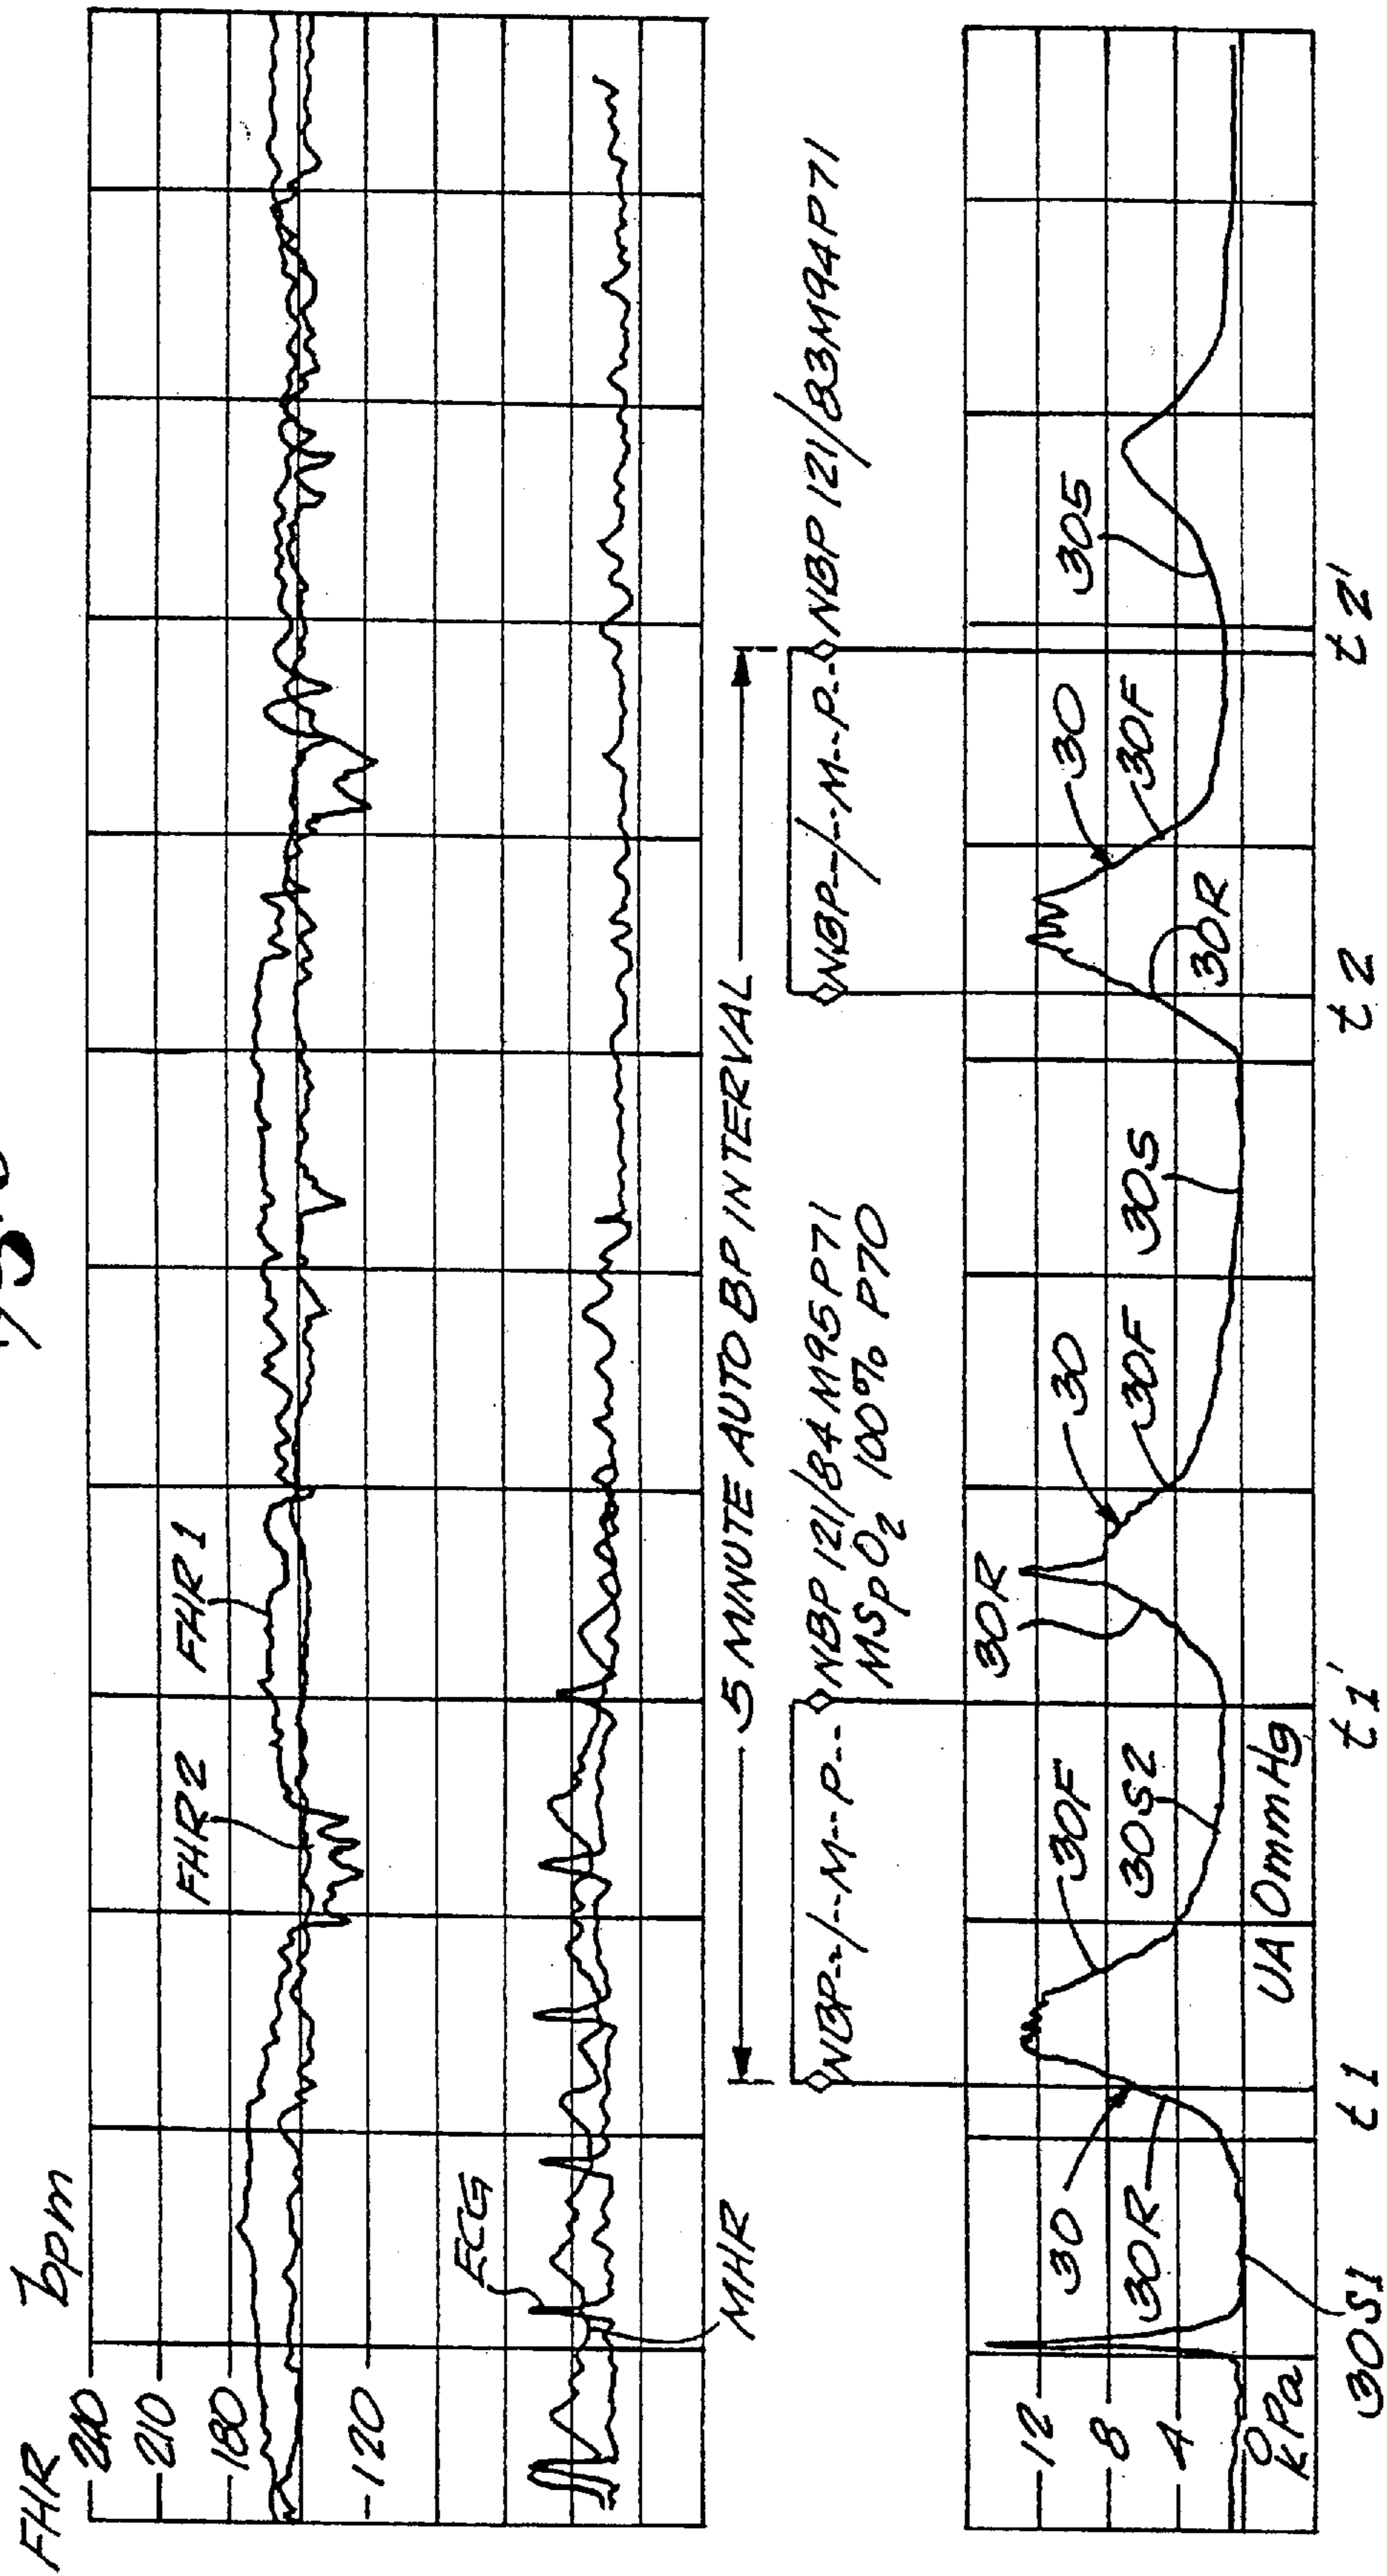 FHR bpm
240
210
180
120
FHR 2
FHR 1
ECG
MHR
5 MINUTE AUTO BP INTERVAL
NBP--/--M--P--
NBP 121/84 M95 P71
MSpO2 100% P70
NBP--/--M--P--
NBP 121/83 M94 P71
12
8
4
0
kPa
30
30R
30F
30S2
30R
30
30F
30S
30R
30
30F
30S
UA 0mmHg
30S1
t1
t1'
t2
t2'